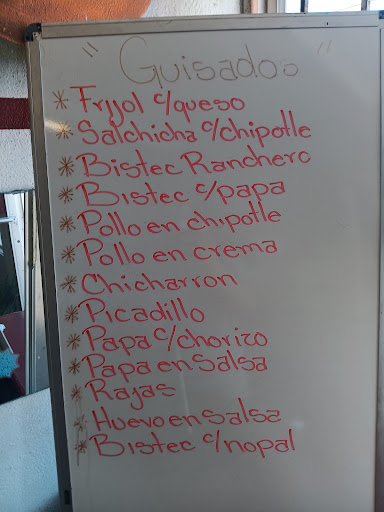 " Guisados "
* Frijol c/queso
* Salchicha c/chipotle
* Bistec Ranchero
* Bistec c/papa
* Pollo en chipotle
* Pollo en crema
* Chicharron
* Picadillo
* Papa c/chorizo
* Papa en Salsa
* Rajas
* Huevo en Salsa
* Bistec c/nopal